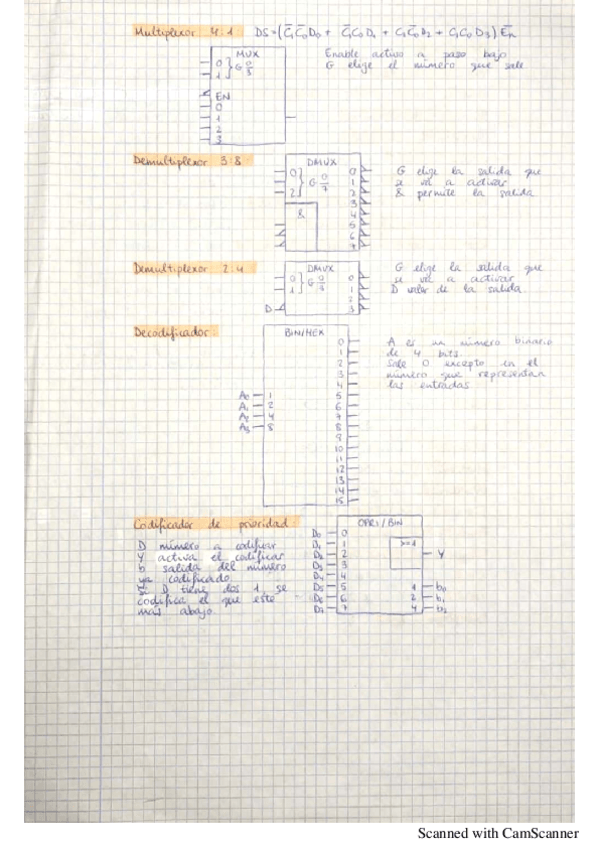 Multiplexor 4:1 DS=(C̅₁C̅₀D₀ + C̅₁C₀D₁ + C₁C̅₀D₂ + C₁C₀D₃) E̅n
MUX
0 } G 0/3
1
EN
0
1
2
3
Enable activo a paso bajo
G elige el número que sale
Demultiplexor 3:8
DMUX
0 } G 0/7
2
&
0
1
2
3
4
5
6
7
G elige la salida que
se va a activar
& permite la salida
Demultiplexor 2:4
DMUX
0 } G 0/3
1
D
0
1
2
3
G elige la salida que
se va a activar
D valor de la salida.
Decodificador
BIN/HEX
A₀ 1
A₁ 2
A₂ 4
A₃ 8
0
1
2
3
4
5
6
7
8
9
10
11
12
13
14
15
A es un número binario
de 4 bits.
Sale 0 excepto en el
número que representan
las entradas
Codificador de prioridad
D número a codificar
Y activa el codificar
b salida del número
ya codificado
Si D tiene dos 1, se
codifica el que este
mas abajo
HPRI/BIN
D₀ 0
D₁ 1
D₂ 2
D₃ 3
D₄ 4
D₅ 5
D₆ 6
D₇ 7
>=1
Y
1 b₀
2 b₁
4 b₂
Scanned with CamScanner